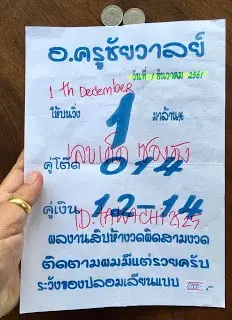 อ.ครูชัยวาลย์
วันที่ 1 ธันวาคม 2561
1 th Dedember
ให้บนวิ่ง 1 มาล้าน%
คู่โต๊ด 014
คู่เงิน 12-14
ผลงานสิบห้างวดผิดสามงวด
ติดตามผมมีแต่รวยครับ
ระวังของปลอมเลียนแบบ